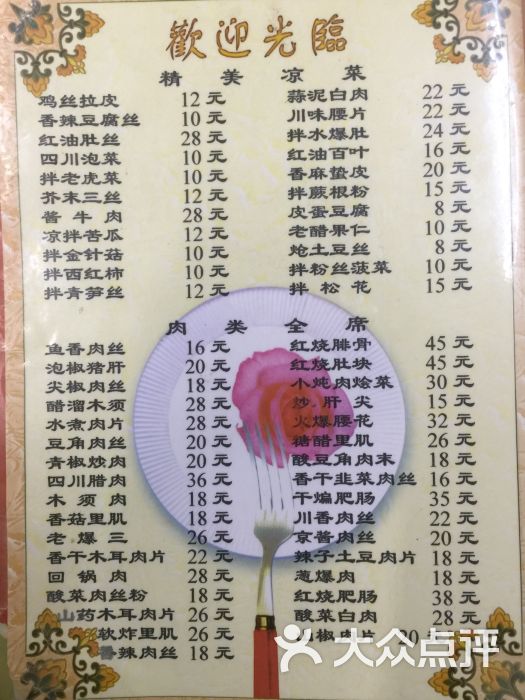 歡迎光臨
精美凉菜
鸡丝拉皮 12元
香辣豆腐丝 10元
红油肚丝 28元
四川泡菜 10元
拌老虎菜 10元
芥末三丝 12元
酱牛肉 28元
凉拌苦瓜 12元
拌金针菇 10元
拌西红柿 10元
拌青笋丝 12元
蒜泥白肉 22元
川味腰片 22元
拌水爆肚 24元
红油百叶 16元
香麻蛰皮 20元
拌蕨根粉 15元
皮蛋豆腐 8元
老醋果仁 10元
炝土豆丝 8元
拌粉丝菠菜 10元
拌松花 15元
肉类全席
鱼香肉丝 16元
泡椒猪肝 20元
尖椒肉丝 18元
醋溜木须 28元
水煮肉片 28元
豆角肉丝 20元
青椒炒肉 20元
四川腊肉 36元
木须肉 18元
香菇里肌 18元
老爆三 26元
香干木耳肉片 22元
回锅肉 28元
酸菜肉丝粉 18元
山药木耳肉片 26元
软炸里肌 26元
香辣肉丝 18元
红烧腓骨 45元
红烧肚块 45元
小炖肉烩菜 30元
炒肝尖 15元
火爆腰花 32元
糖醋里肌 26元
酸豆角肉末 18元
香干韭菜肉丝 16元
干煸肥肠 35元
川香肉丝 22元
京酱肉丝 20元
辣子土豆肉片 18元
葱爆肉 18元
红烧肥肠 38元
酸菜白肉 28元
椒肉片 20元
大众点评